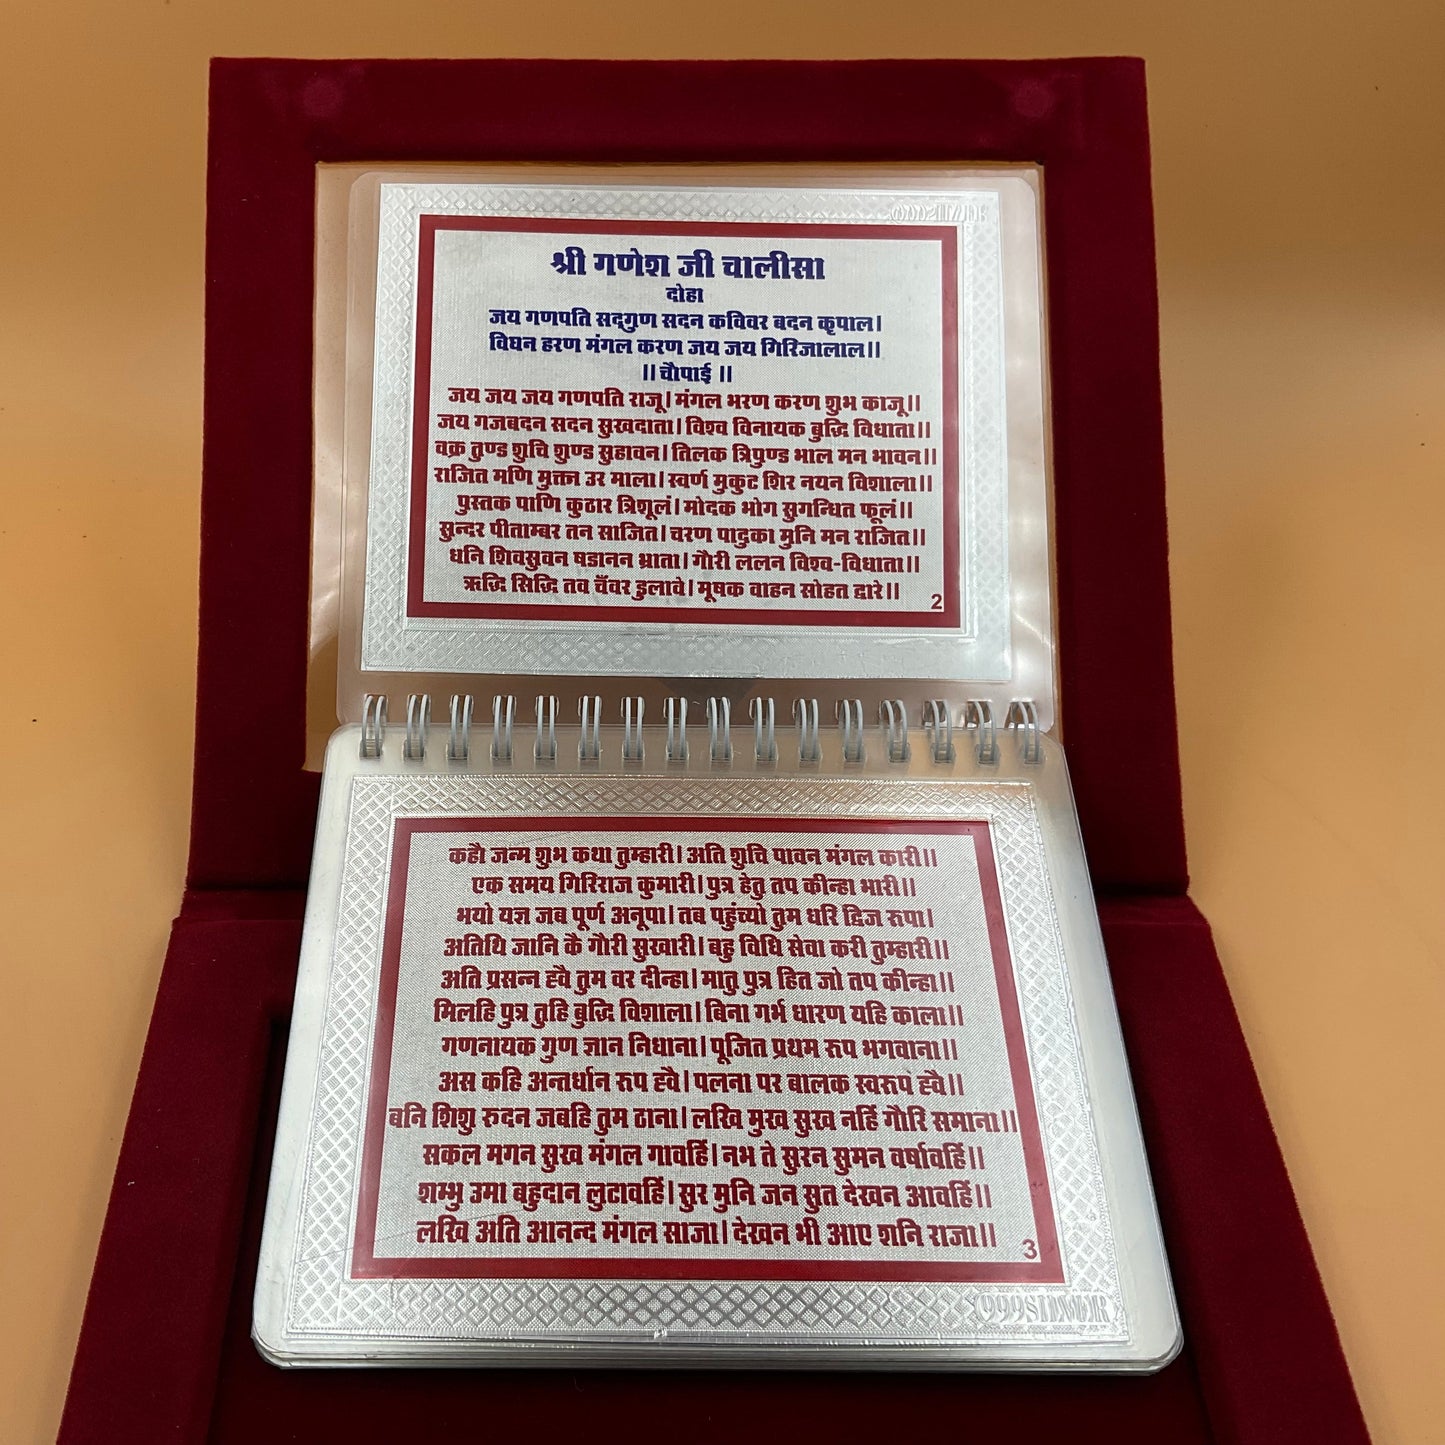 999SILVER
श्री गणेश जी चालीसा
दोहा
जय गणपति सद्गुण सदन कविवर बदन कृपाल।
विघन हरण मंगल करण जय जय गिरिजालाल।।
।।चौपाई ।।
जय जय जय गणपति राजू।मंगल भरण करण शुभ काजू।।
जय गजबदन सदन सुखदाता।विश्व विनायक बुद्धि विधाता।।
वक्र तुण्ड शुचि शुण्ड सुहावन।तिलक त्रिपुण्ड भाल मन भावन।।
राजित मणि मुक्ता उर माला।स्वर्ण मुकुट शिर नयन विशाला।।
पुस्तक पाणि कुठार त्रिशूलं।मोदक भोग सुगन्धित फूलं।।
सुन्दर पीताम्बर तन साजित।चरण पादुका मुनि मन राजित।।
धनि शिवसुवन षडानन भ्राता।गौरी ललन विश्व-विधाता।।
ऋद्धि सिद्धि तव चँवर डुलावे।मूषक वाहन सोहत द्वारे।।
2
कहौ जन्म शुभ कथा तुम्हारी।अति शुचि पावन मंगल कारी।।
एक समय गिरिराज कुमारी।पुत्र हेतु तप कीन्हा भारी।।
भयो यज्ञ जब पूर्ण अनूपा।तब पहुंच्यो तुम धरि द्विज रूपा।
अतिथि जानि कै गौरी सुखारी।बहु विधि सेवा करी तुम्हारी।।
अति प्रसन्न ह्वै तुम वर दीन्हा।मातु पुत्र हित जो तप कीन्हा।।
मिलहि पुत्र तुहि बुद्धि विशाला।बिना गर्भ धारण यहि काला।।
गणनायक गुण ज्ञान निधाना।पूजित प्रथम रूप भगवाना।।
अस कहि अन्तर्धान रूप ह्वै।पलना पर बालक स्वरूप ह्वै।।
बनि शिशु रुदन जबहि तुम ठाना।लखि मुख सुख नहिं गौरि समाना।।
सकल मगन सुख मंगल गावहिं।नभ ते सुरन सुमन वर्षावहिं।।
शम्भु उमा बहुदान लुटावहिं।सुर मुनि जन सुत देखन आवहिं।।
लखि अति आनन्द मंगल साजा।देखन भी आए शनि राजा।।
3
999SILVER